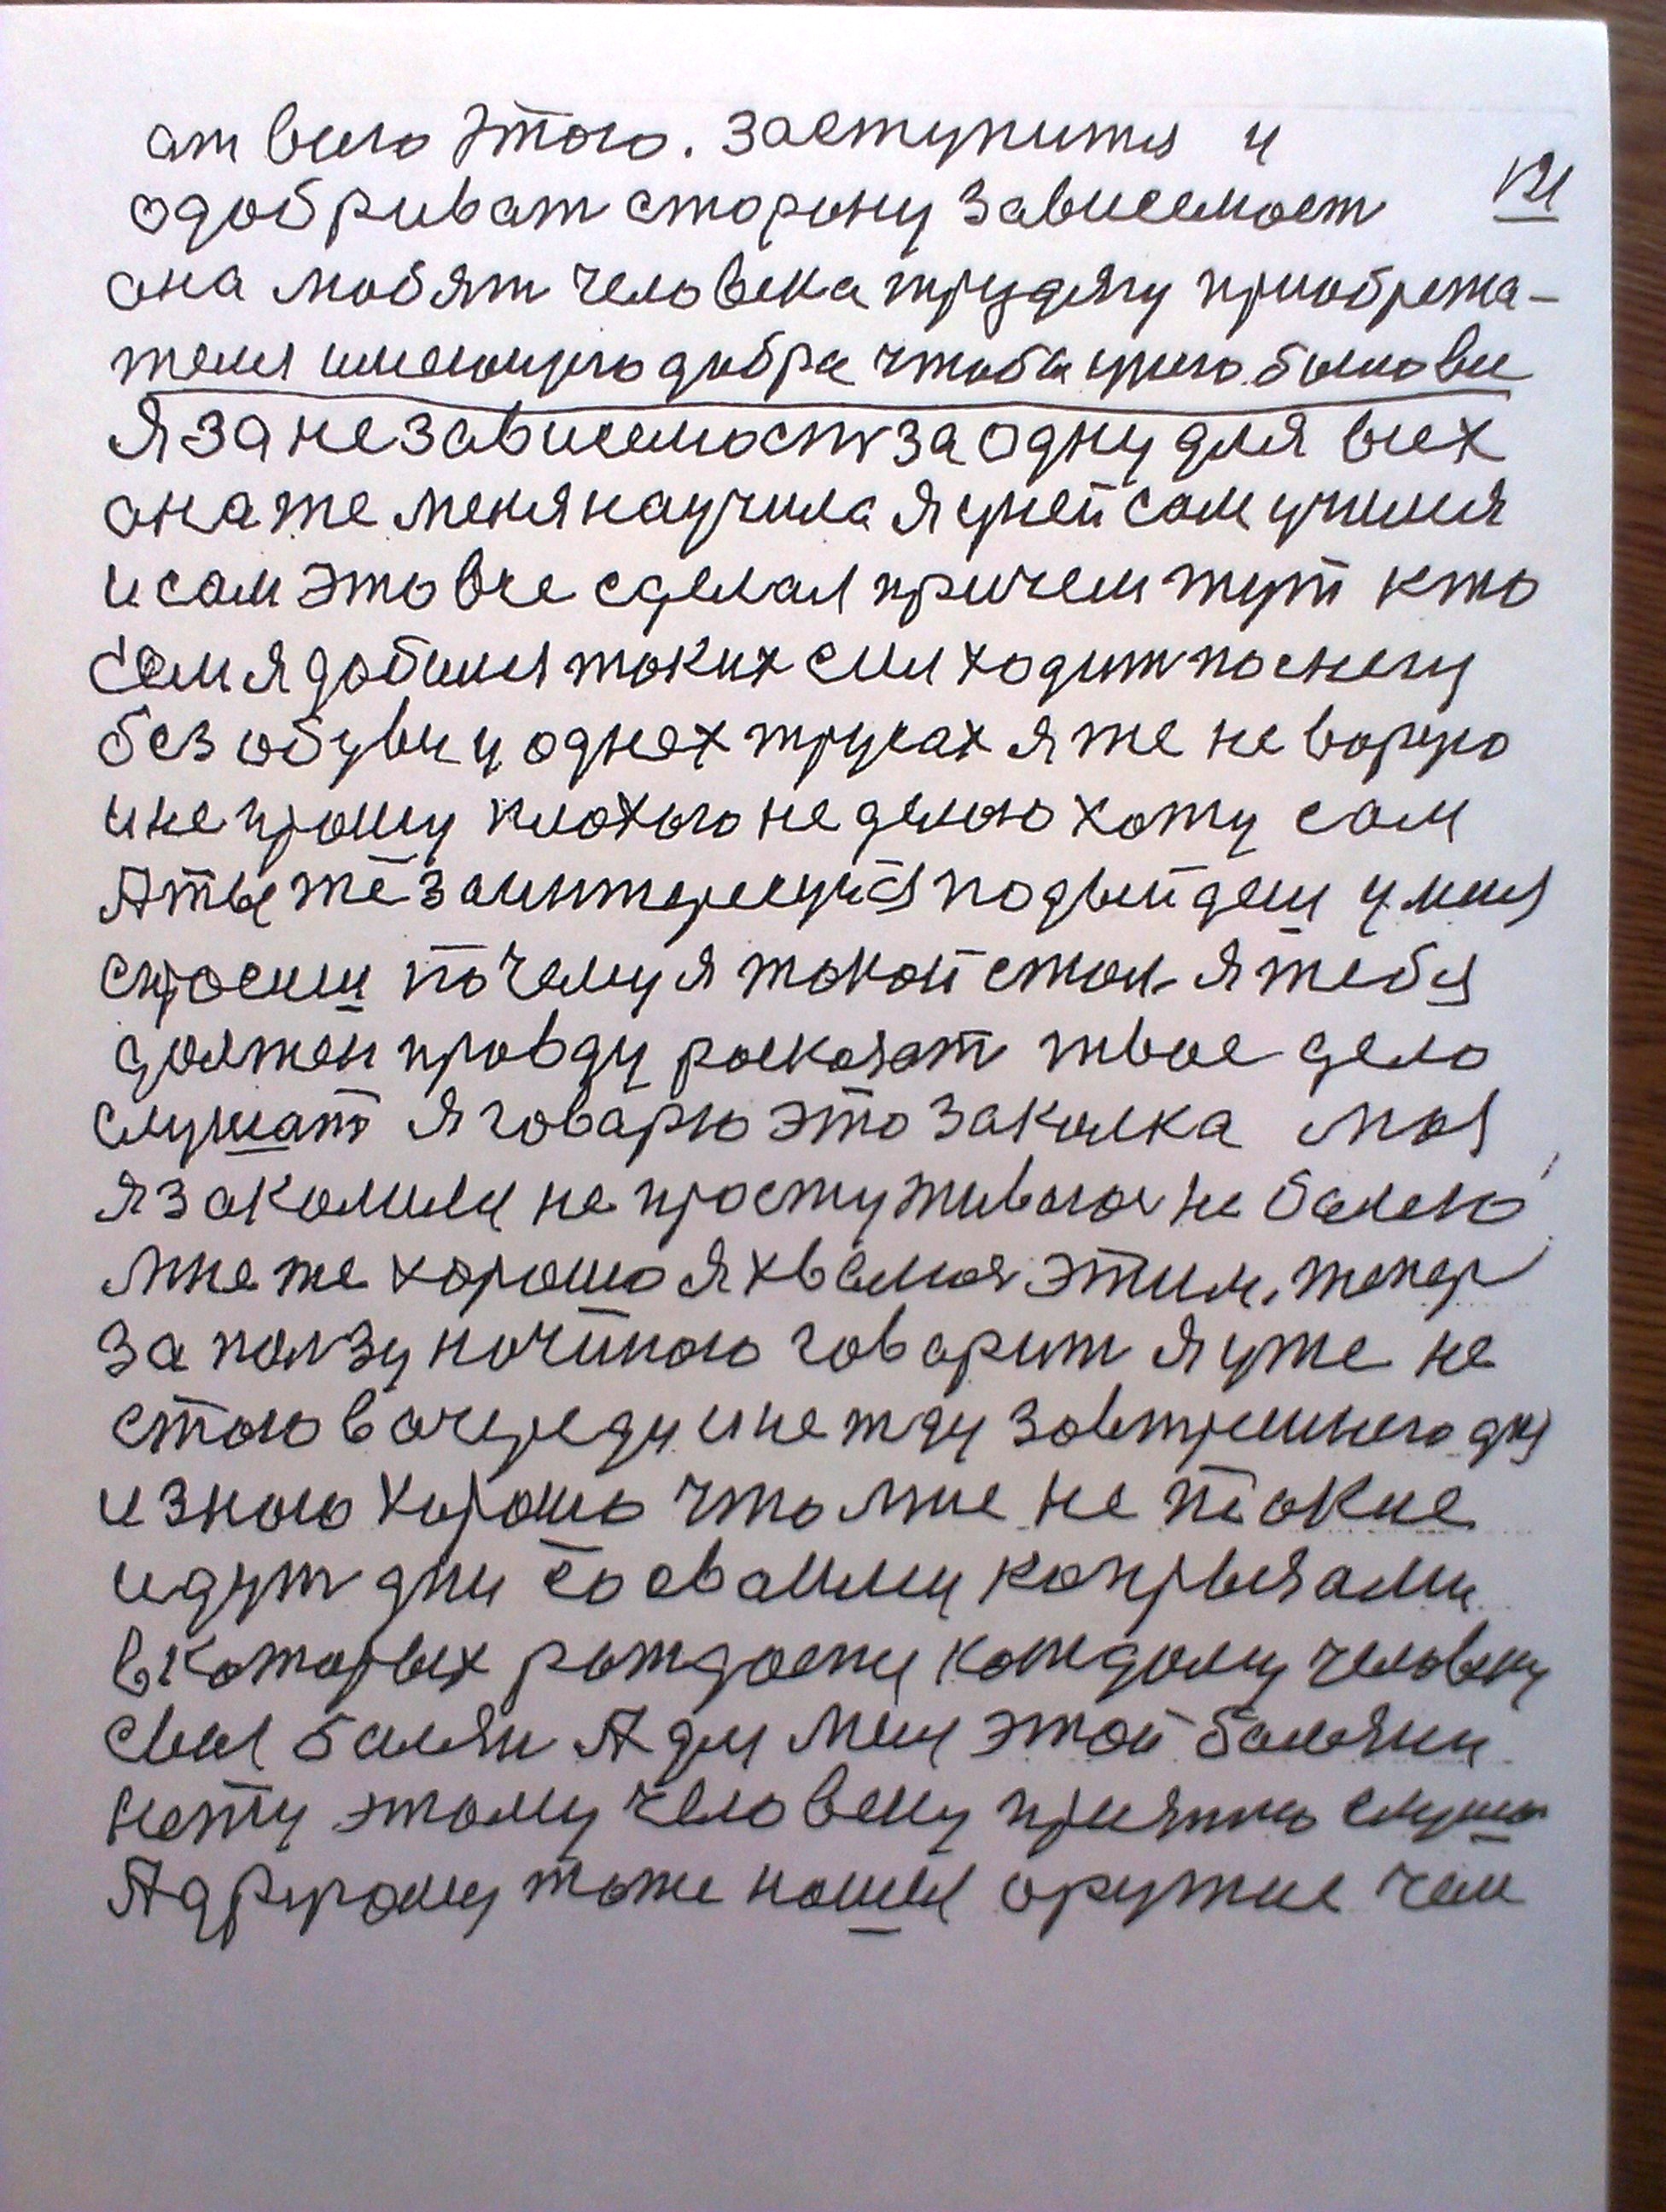 ат всего этого. заступится и
одобриват сторону зависемост 121
она любят человека трудягу приобрета-
теля имеющего добра чтоба унего было все
Я за независемость за одну для всех
она же меня научила я уней сам учился
и сам это все сделал причем тут кто
Сам я добился таких сил ходит по снегу
без обуви у однех трусах я же не ворую
и не прошу плохого не делаю хожу сам
А ты же заинтересуися подыйдеш у меня
спросиш почему я такой стал. я тебя
должен правду расказат твое дело
слушат я говарю это закалка моя
я заколился не простуживаюся не балею
мне же хорошо я хвалюся этим. тепер
за ползу ночинаю говарит я уже не
стою в очереди и не жду завтрешнего дня
и знаю хорошо что мне не такие
идут дни со сваими капрызами
в каторых рождается каждому человеку
своя балячка А для меня этой балячки
нету этому человеку приятно слушат
А другому тоже нашел оружие чем